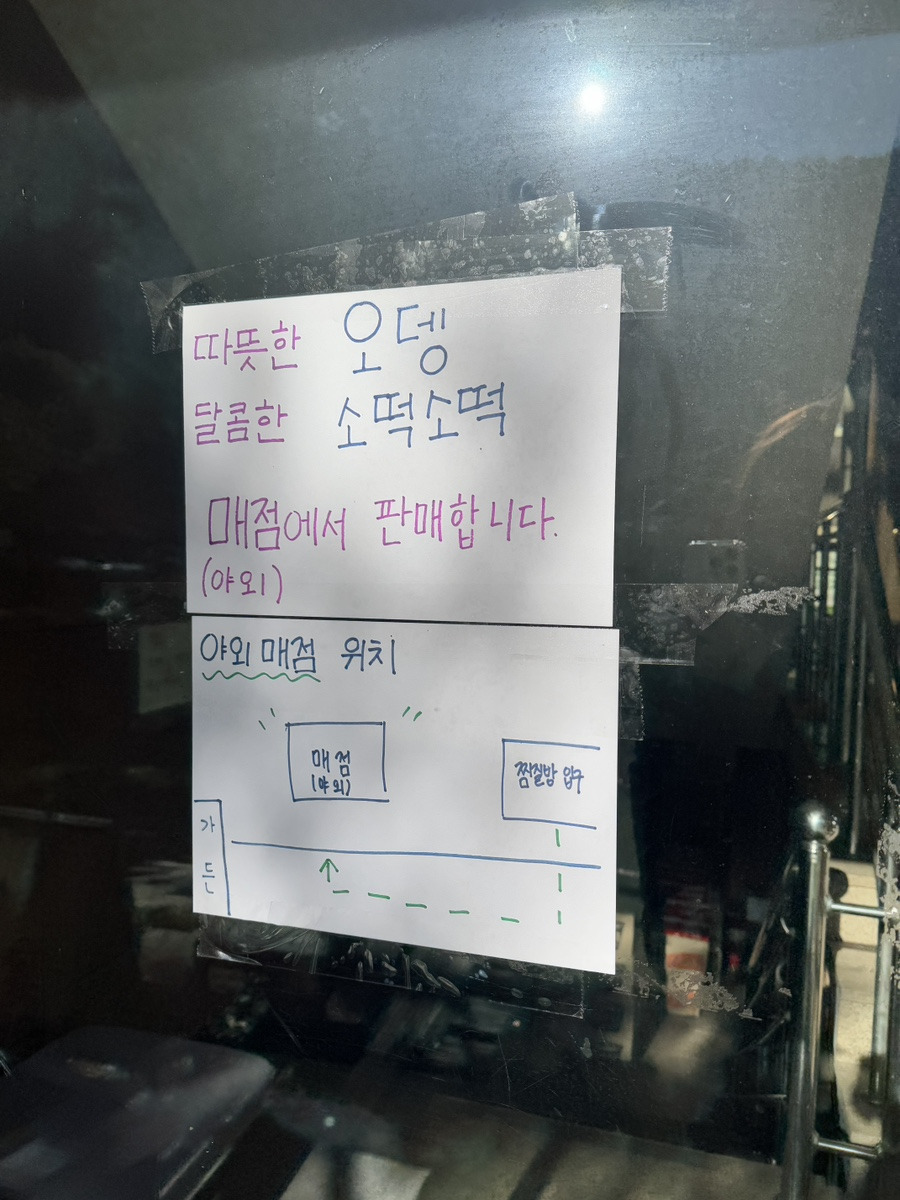 따뜻한 오뎅
달콤한 소떡소떡
매점에서 판매합니다.
(야외)
야외 매점 위치
매점
(야외)
찜질방 입구
가든